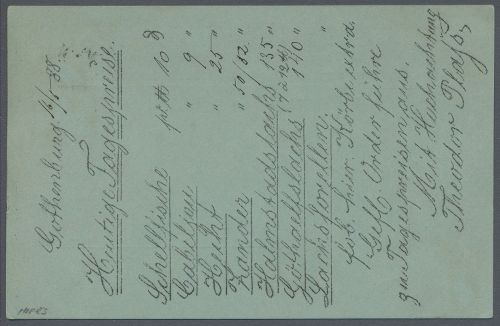 Gothenburg 16/5 88.
Heutige Tagespreise.
Schellfische pr tt 10 ₰
Cabeljau " 9 "
Hecht " 25 "
Zander " 50/52 "
Halmstadslachs 135 "
Götha Elfslachs "
Lachsforellen. 140 "
fob. hier. Körbe extra.
Gefl. Order führe
zu Tagespreisen aus.
Mit Hochachtung
Theodor